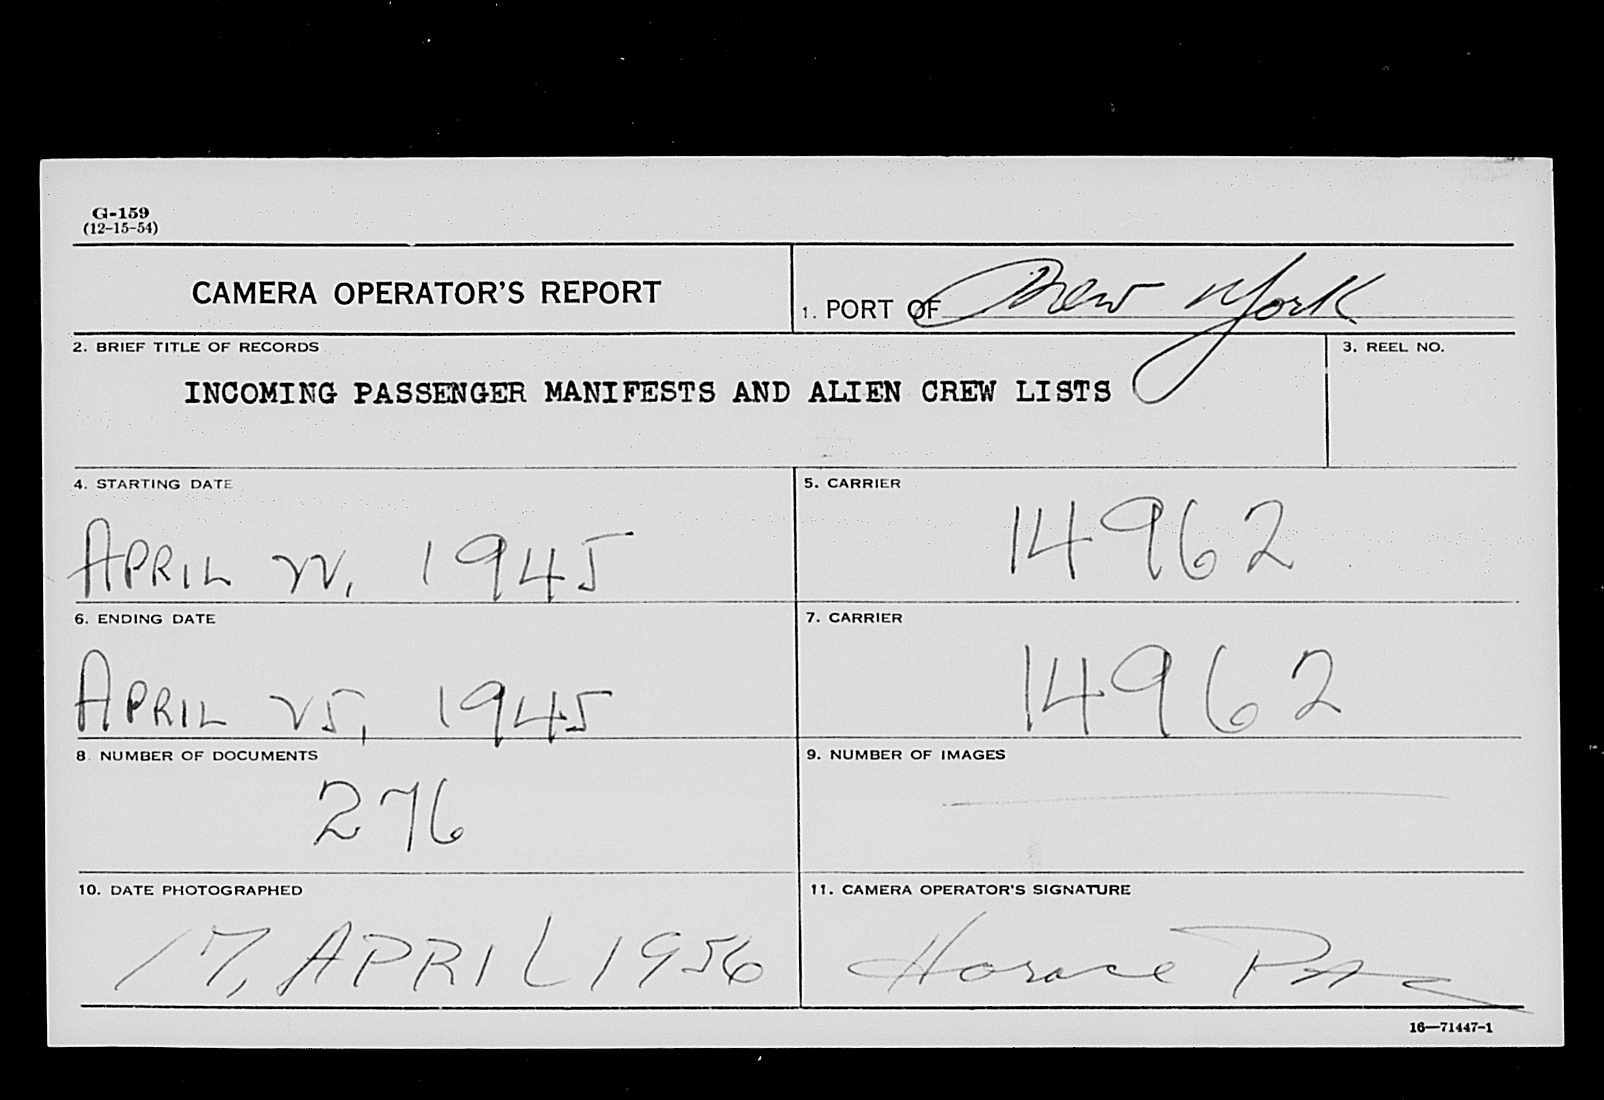 G-159
(12-15-54)
CAMERA OPERATOR'S REPORT
1. PORT OF New York
2. BRIEF TITLE OF RECORDS
INCOMING PASSENGER MANIFESTS AND ALIEN CREW LISTS
3. REEL NO.
4. STARTING DATE
APRIL 22, 1945
5. CARRIER
14962
6. ENDING DATE
APRIL 25, 1945
7. CARRIER
14962
8. NUMBER OF DOCUMENTS
276
9. NUMBER OF IMAGES
10. DATE PHOTOGRAPHED
17, APRIL 1956
11. CAMERA OPERATOR'S SIGNATURE
Horace
16—71447-1